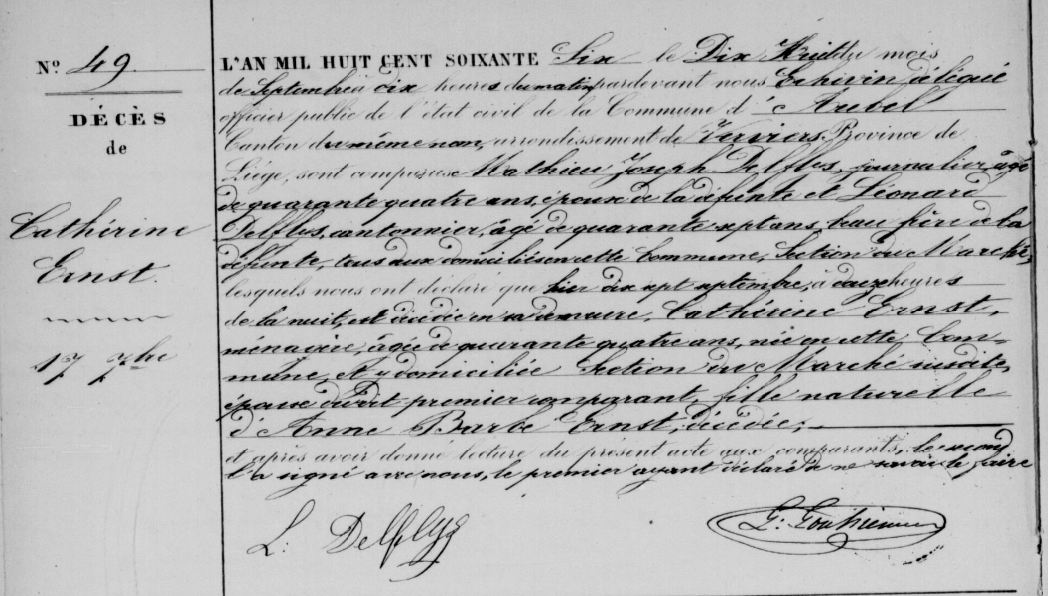 Nº 49.
DÉCÈS
de
Cathérine
Ernst.
17 7bre
L'AN MIL HUIT CENT SOIXANTE Six le Dix Huit du mois
de Septembre à dix heures du matin pardevant nous Echevin délégué
officier public de l'état civil de la Commune d' Aubel
Canton du même nom, arrondissement de Verviers Province de
Liége, sont comparus Mathieu Joseph Delflys, journalier, âgé
de quarante quatre ans, époux de la défunte et Léonard
Delflys, cantonnier, âgé de quarante sept ans, beau frère de la
défunte, tous deux domiciliés en cette Commune, Section du Marché,
lesquels nous ont déclaré que hier dix sept septembre, à heures
de la nuit, est décédée en sa demeure, Cathérine Ernst,
ménagère, âgée de quarante quatre ans, née en cette Com-
mune, et y domiciliée Section du Marché susdite,
épouse du dit premier comparant, fille naturelle
d'Anne Barbe Ernst, décédée;
et après avoir donné lecture du présent acte aux comparants, le second
l'a signé avec nous, le premier ayant déclaré de ne savoir le faire
L: Delflys